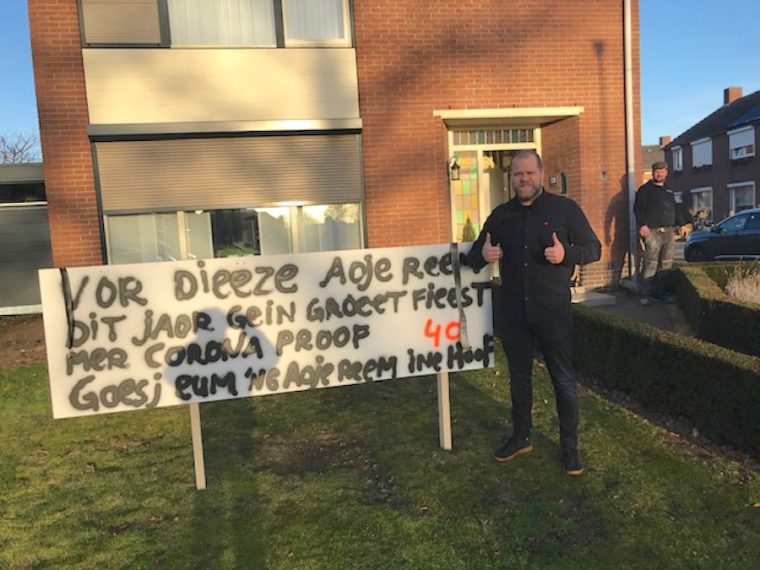 VOR DIEEZE AOJE REEM
DIT JAOR GEIN GROEET FIEEST
MER CORONA PROOF 40
GOESJ EUM 'NE AOJE REEM INE HOOF